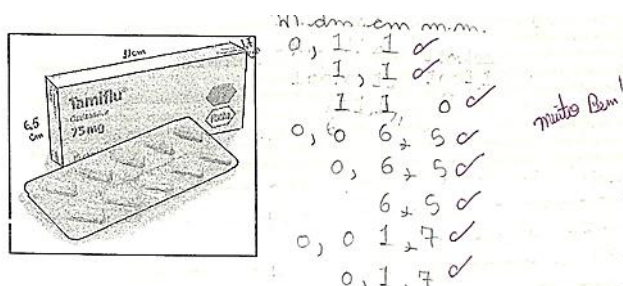 11cm
1,7
cm
6,5
cm
Tamiflu
75mg
Roche
m. dm cm m.m.
0, 1 1
1, 1
1 1, 0
0, 0 6, 5
0, 6, 5
6, 5
0, 0 1, 7
0, 1, 7
muito Bem!